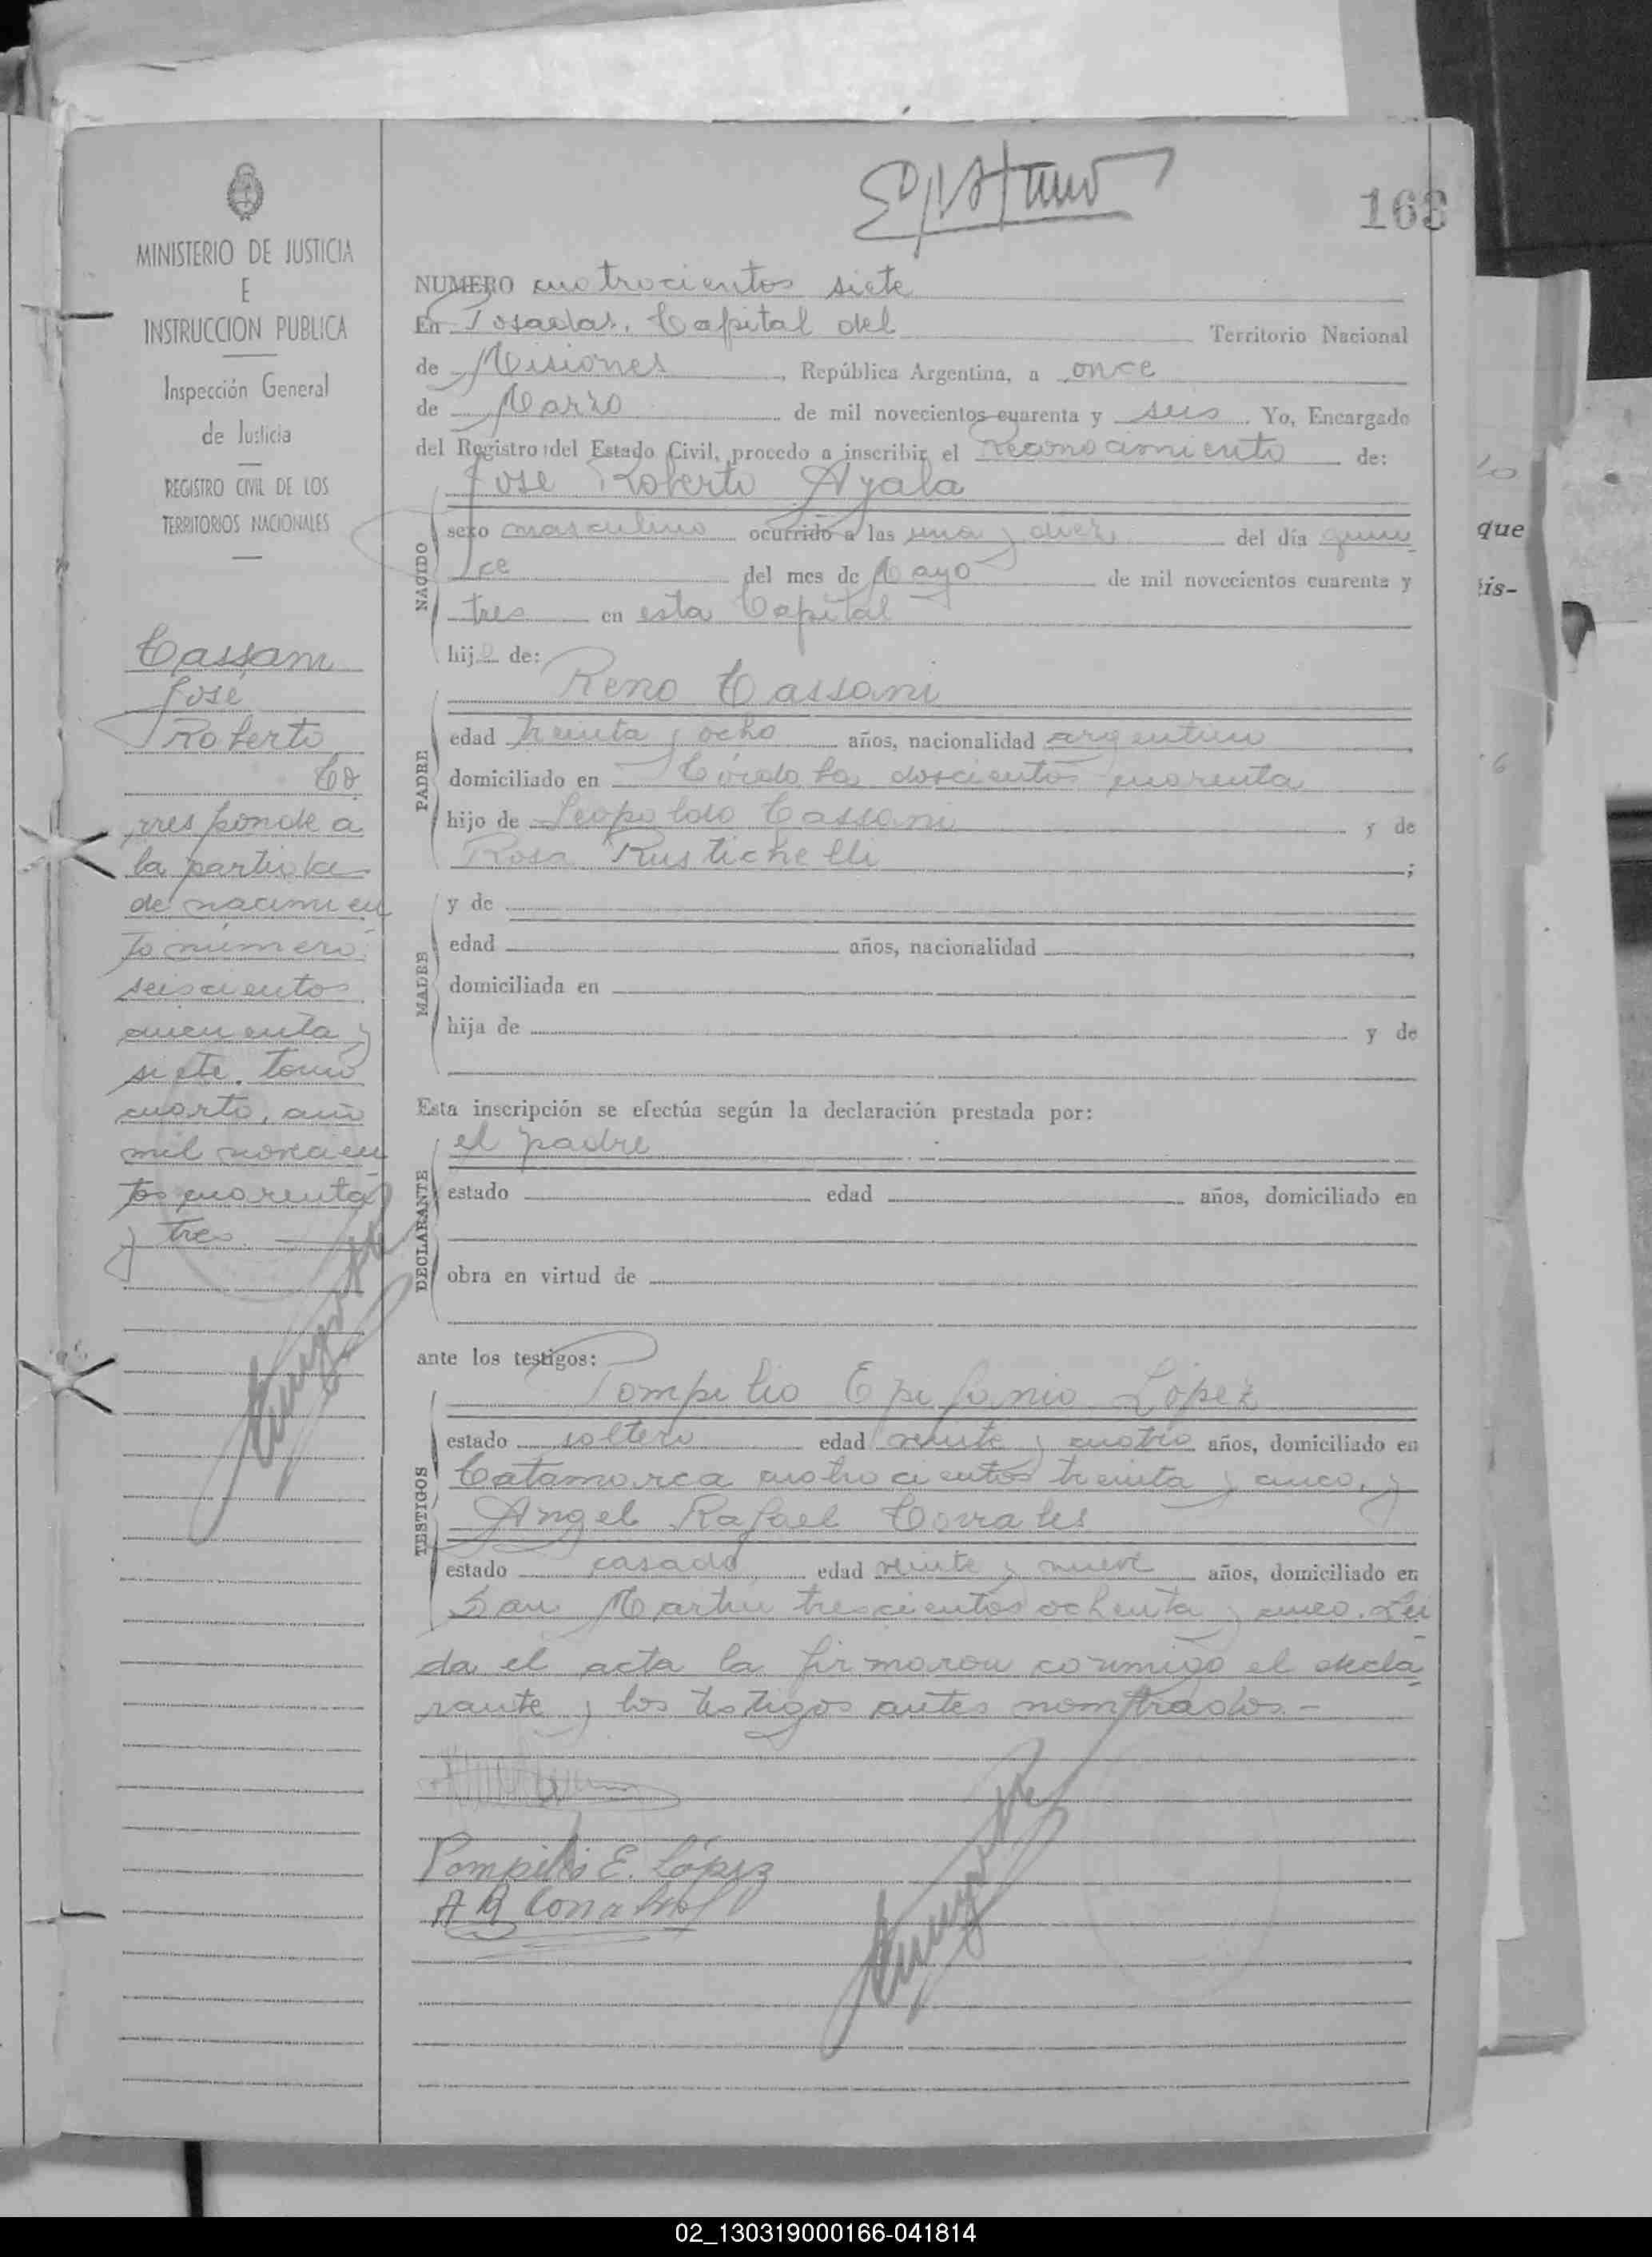 163
MINISTERIO DE JUSTICIA
E
INSTRUCCION PUBLICA
Inspección General
de Justicia
REGISTRO CIVIL DE LOS
TERRITORIOS NACIONALES
Cassani
José
Roberto
Co
rresponde a
la partida
de nacimien
to número
seiscientos
cincuenta y
siete. tomo
cuarto, año
mil novecien
tos cuarenta
y tres
NUMERO cuatrocientos siete
En Posadas, Capital del Territorio Nacional
de Misiones, República Argentina, a once
de Marzo de mil novecientos cuarenta y seis Yo, Encargado
del Registro del Estado Civil, procedo a inscribir el Reconocimiento de:
José Roberto Ayala
NACIDO
sexo masculino ocurrido a las una y diez del día quin
ce del mes de Mayo de mil novecientos cuarenta y
tres en esta Capital
hijo de:
Reno Cassani
PADRE
edad treinta y ocho años, nacionalidad argentino
domiciliado en Córdoba doscientos cuarenta
hijo de Leopoldo Cassani y de
Rosa Rustichelli;
MADRE
y de
edad años, nacionalidad
domiciliada en
hija de y de
Esta inscripción se efectúa según la declaración prestada por:
DECLARANTE
el padre
estado edad años, domiciliado en
obra en virtud de
ante los testigos:
TESTIGOS
Pompilio Epifanio López
estado soltero edad veinte y cuatro años, domiciliado en
Catamarca cuatrocientos treinta y cinco, y
Angel Rafael Corrales
estado casado edad veinte y nueve años, domiciliado en
San Martin trescientos ochenta y cinco. Leí
da el acta la firmaron conmigo el decla
rante y los testigos antes nombrados.-
Pompilio E. López
A R Corrales
que
is-
02_130319000166-041814